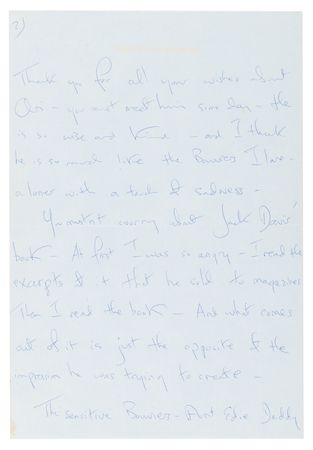 2)
Thank you for all your wishes about
Ari - you must meet him some day - He
is so wise and kind - and I think
he is so much like the Bouviers I love -
a loner with a touch of sadness -
You mustn't worry about Jack Davis'
book - At first I was so angry - I read the
excerpts of it that he sold to magazines
Then I read the book - And what comes
out of it is just the opposite of the
impression he was trying to create -
The sensitive Bouviers - Aunt Edie Daddy